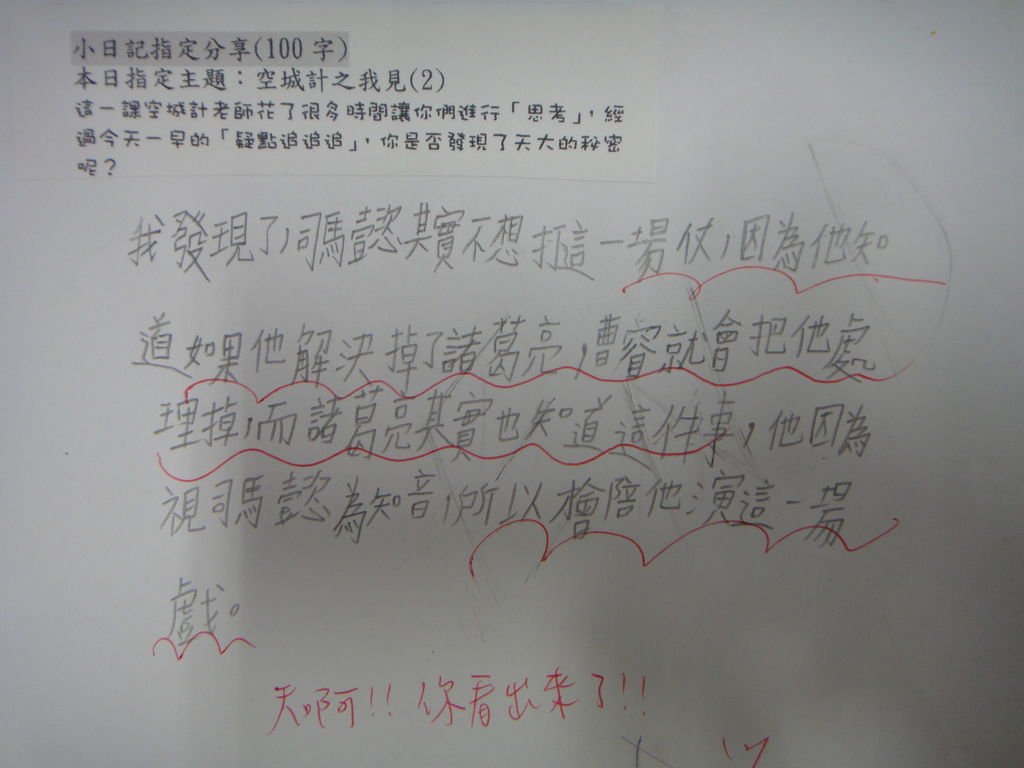 小日記指定分享(100 字)
本日指定主題：空城計之我見(2)
這一課空城計老師花了很多時間讓你們進行「思考」，經
過今天一早的「疑點追追追」，你是否發現了天大的秘密
呢？
我發現了，司馬懿其實不想打這一場仗，因為他知
道如果他解決掉了諸葛亮，曹睿就會把他處
理掉，而諸葛亮其實也知道這件事，他因為
視司馬懿為知音，所以檜陪他演這一場
戲。
天啊!! 你看出來了!!